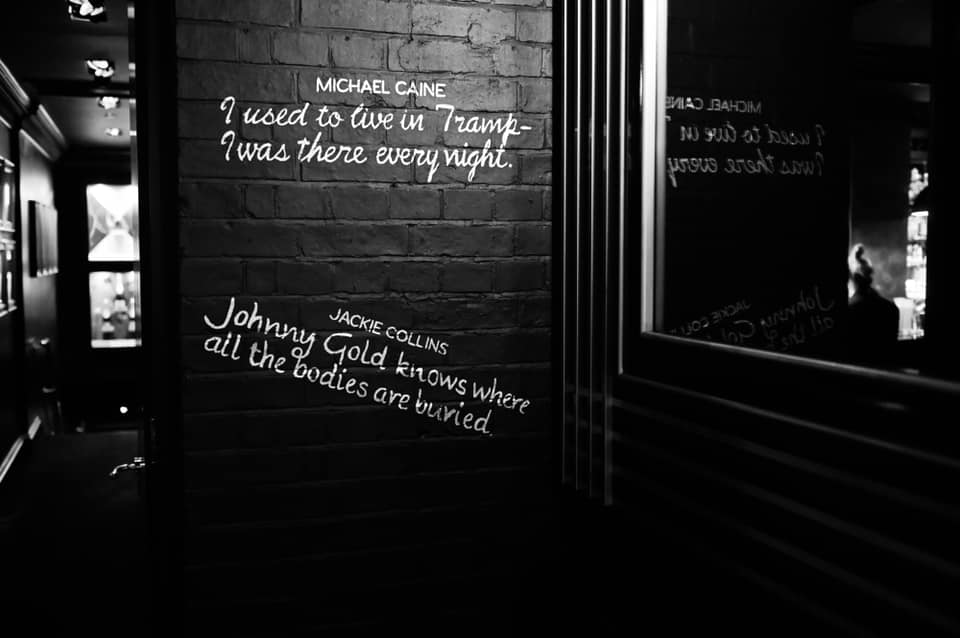 MICHAEL CAINE
I used to live in Tramp-
I was there every night.
JACKIE COLLINS
Johnny Gold knows where
all the bodies are buried.
MICHAEL CAINE
I used to live in T
I was there every
JACKIE COLLI
Johnny Gol
all the